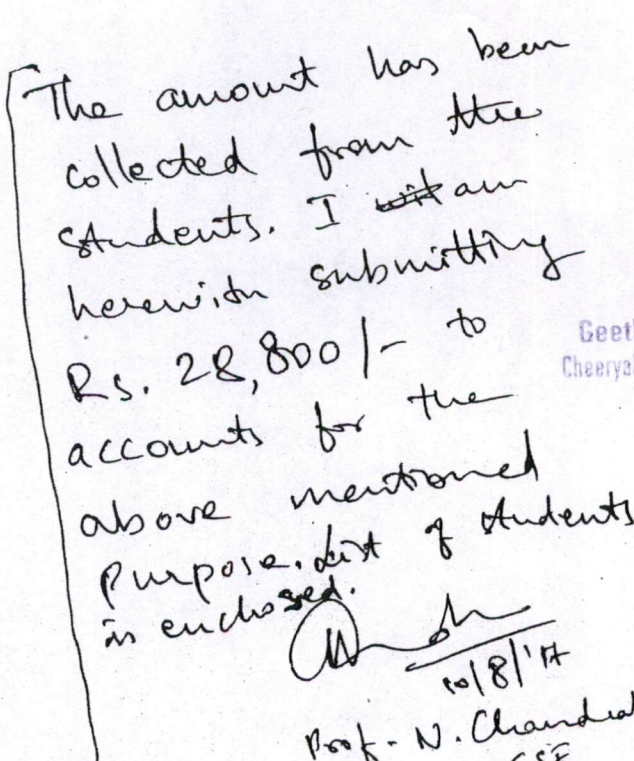 The amount has been
collected from the
students. I am
herewith submitting
Rs. 28,800/- to
accounts for the
above mentioned
purpose. List of students
is enclosed.
10/8/17
Prof. N. Chand
CSE
Geet
Cheerya